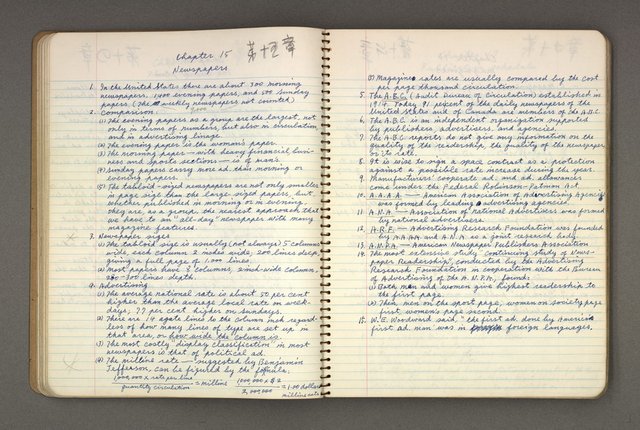 Chapter 15 第十五章
Newspapers
1. In the United States there are about 300 morning
newspapers, 1400 evening papers, and 500 Sunday
papers. (The weekly newspapers not counted)
2. Comparison:
(1) The evening papers as a group are the largest, not
only in terms of numbers, but also in circulation
and in advertising linage.
(2) The evening paper is the woman's paper.
(3) The morning paper—with heavy financial, busi-
ness and sports sections—is of man's.
(4) Sunday papers carry more ad. than morning or
evening papers.
(5) The tabloid-sized newspapers are not only smaller
in page size than the large-sized papers, but
whether published in morning or in evening,
they are, as a group, the nearest approach that
we have to an "all-day" newspaper with many
magazine features.
3. Newspaper sizes
(1) The tabloid size is usually (not always) 5 columns
wide, each column 2 inches wide, 200 lines deep,
giving a full page of 1,000 lines.
(2) Most papers have 8 columns, 2-inch-wide column,
280-300 lines depth.
4. Advertising
(1) The average national rate is about 50 per cent
higher than the average local rate on week-
days; 77 per cent higher on Sundays.
(2) There are 14 agate lines to the column inch regard-
less of how many lines of type are set up in
that area, or how wide the column is.
(3) The most costly "display classification" in most
newspapers is that of political ad.
(4) The milline rate—suggested by Benjamin
Jefferson, can be figured by the formula:
1,000,000 × rate per line / quantity circulation = milline 1,000,000 × $2 / 2,000,000 = 1.00 dollar milline rate
(5) Magazine rates are usually compared by the cost
per page thousand circulation.
5. The A.B.C. (Audit Bureau of Circulation) established in
1914. Today 91 percent of the daily newspapers of the
United States and of Canada are members of the A.B.C.
6. The A.B.C. is an independent organization supported
by publishers, advertisers, and agencies.
7. The A.B.C. reports do not give any information on the
quality of the readership, the quality of the newspaper
or its rate.
8. It is wise to sign a space contract as a protection
against a possible rate increase during the year.
9. Manufacturers' cooperate ad. and ad. allowances
come under the Federal Robinson-Patman Act.
10. A.A.A.A. — American Association of Advertising Agencies
was formed by leading advertising agencies.
11. A.N.A. — Association of National Advertisers was formed
by national advertisers.
12. A.R.F. — Advertising Research Foundation was founded
by A.A.A.A. and A.N.A. as a joint research body.
13. A.N.P.A. — American Newspaper Publishers Association
14. The most extensive study "Continuing Study of News-
paper Readership," conducted by the Advertising
Research Foundation in cooperation with the Bureau
of Advertising of the A.N.P.A., found:
(1) Both men and women give highest readership to
the first page.
(2) Then, men on the sport page, women on society page
first, women's page second.
15. W. E. Woodward said, "the first ad. done by America's
first ad. men was in foreign languages.